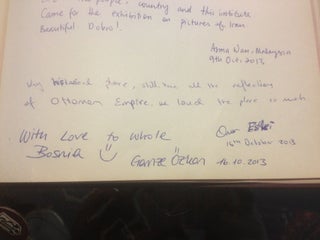 the people, country and this institute
Came for the exhibition on pictures of Iran
Beautiful Dobro!.
Malaysia
9th Oct. 2013
Very historical place, still has all the reflections
of Ottoman Empire, we loved the place so much
With Love to whole
16th October 2013
Bosnia
Gamze Özkan 16.10.2013